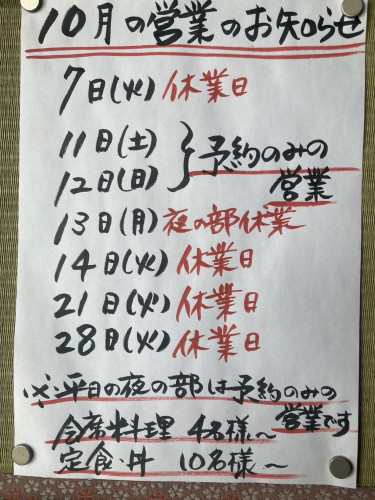 10月の営業のお知らせ
7日(火) 休業日
11日(土)
12日(日) } 予約のみの
営業
13日(月) 夜の部休業
14日(火) 休業日
21日(火) 休業日
28日(火) 休業日
※平日の夜の部は予約のみの
営業です
会席料理 4名様〜
定食・丼 10名様〜